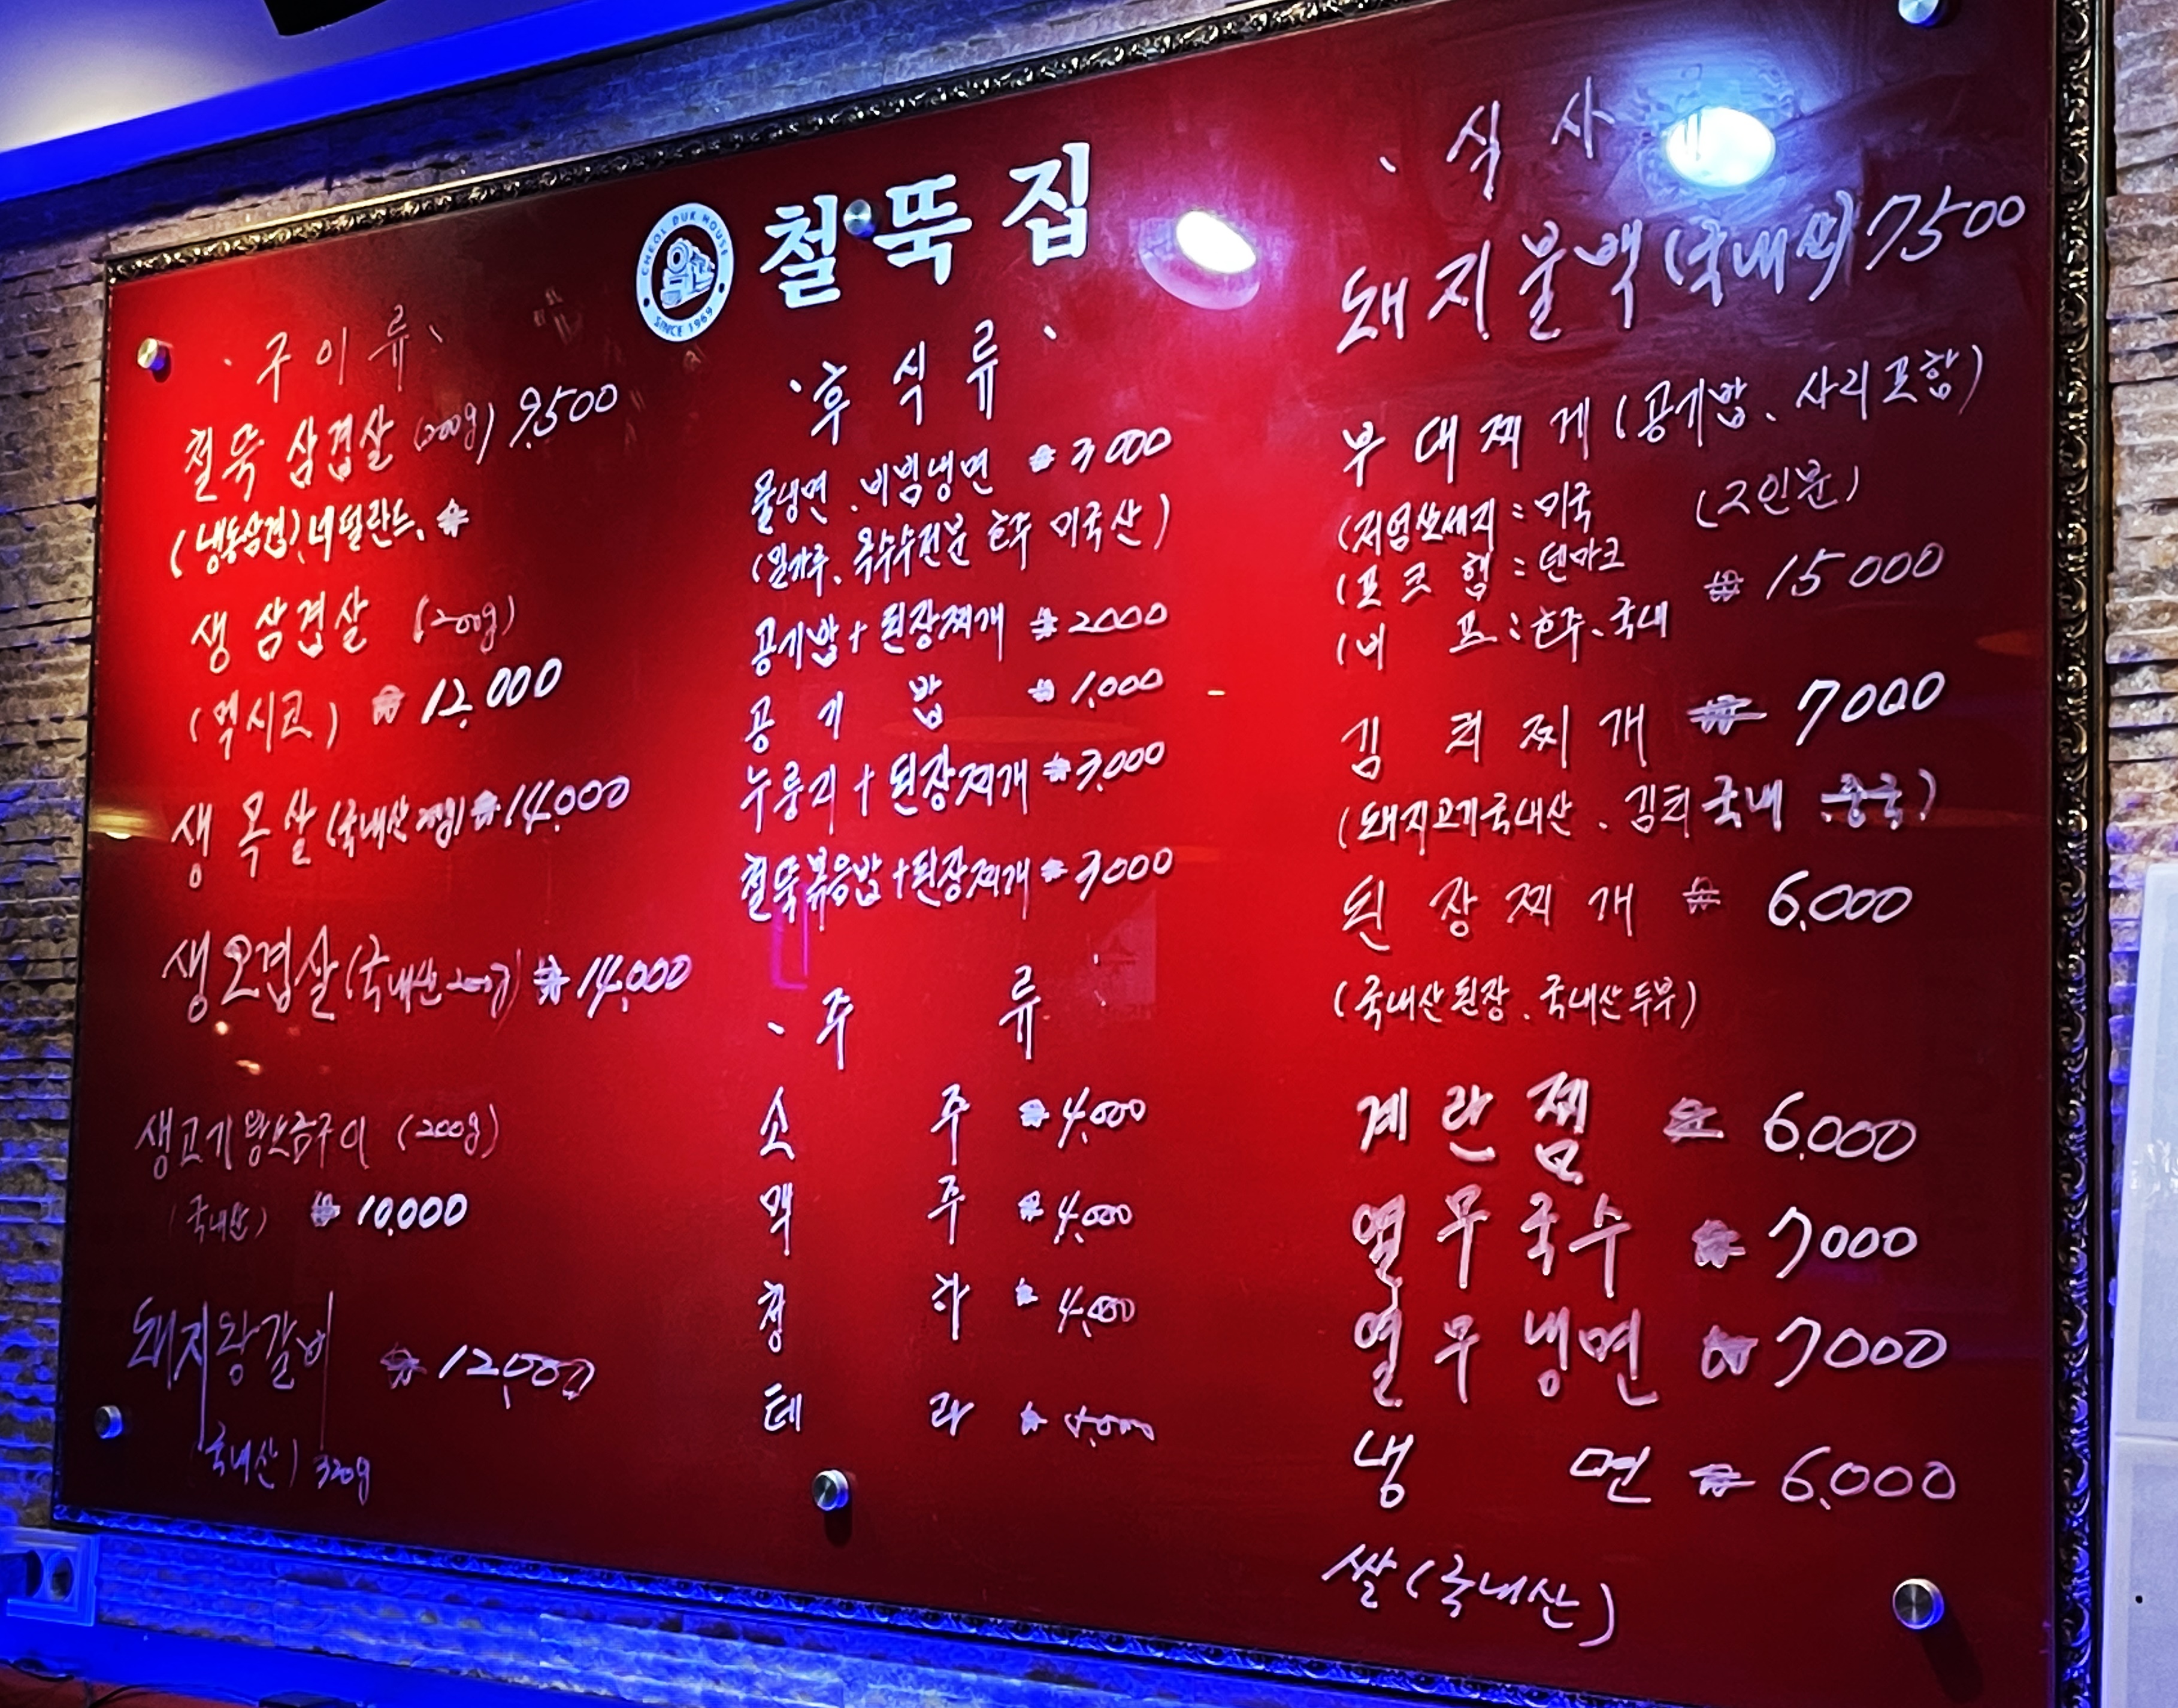 CHEOL DUK HOUSE
SINCE 1969
철뚝집
구이류
철뚝 삼겹살 (200g) 9,500
(냉동삼겹), 네덜란드, ₩
생 삼겹살 (200g)
(멕시코) ₩ 12,000
생 목살 (국내산) ₩ 14,000
생오겹살 (국내산 200g) ₩ 14,000
생고기 방방소금구이 (200g)
(국내산) ₩ 10,000
돼지왕갈비 ₩ 12,000
(국내산) 320g
후식류
물냉면. 비빔냉면 ₩ 3000
(밀가루, 옥수수전분 호주 미국산)
공기밥 + 된장찌개 ₩ 2000
공기밥 ₩ 1,000
누룽지 + 된장찌개 ₩ 3,000
철뚝볶음밥 + 된장찌개 ₩ 3000
주류
소주 ₩ 4,000
맥주 ₩ 4,000
청하 ₩ 4,000
테라 ₩ 4,000
식사
돼지불백 (국내산) 7500
부대찌게 (공기밥, 사리포함)
(저염쏘세지 : 미국 (2인분)
(포크햄 : 덴마크 ₩ 15000
(비프 : 호주, 국내
김치찌개 ₩ 7000
(돼지고기국내산. 김치국내 중국)
된장찌개 ₩ 6,000
(국내산된장. 국내산두부)
계란찜 ₩ 6,000
열무국수 ₩ 7000
열무냉면 ₩ 7000
냉면 ₩ 6,000
쌀 (국내산)